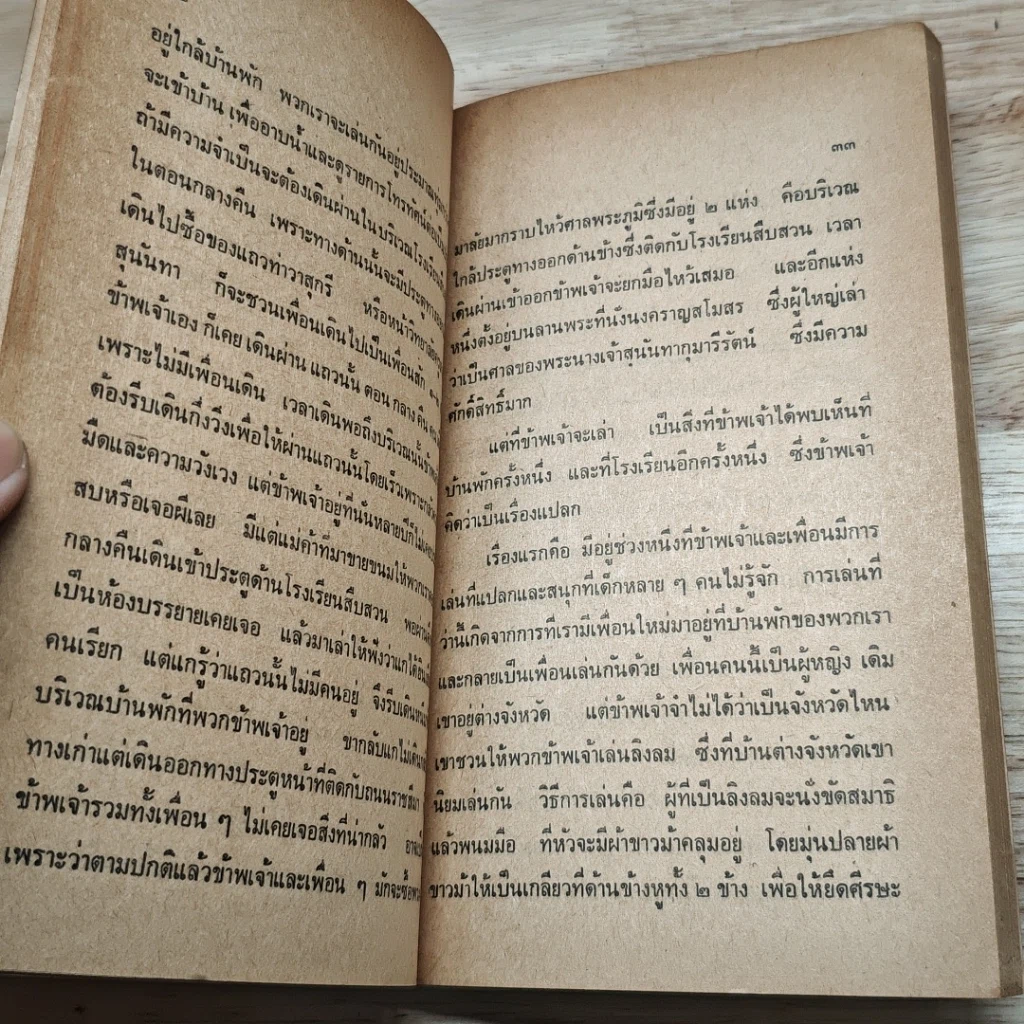 อยู่ใกล้บ้านพัก พวกเราจะเล่นกันอยู่ประมาณ
จะเข้าบ้าน เพื่ออาบน้ำและดูรายการโทรทัศน์ตอนเย็น
ถ้ามีความจำเป็นจะต้องเดินผ่านในบริเวณโรงเรียน
ในตอนกลางคืน เพราะทางด้านนั้นจะมีประตูทางออก
เดินไปซื้อของแถวท่าวาสุกรี หรือหน้าวิทยาลัยครู
สุนันทา ก็จะชวนเพื่อนเดินไปเป็นเพื่อนสัก
ข้าพเจ้าเอง ก็เคย เดินผ่าน แถวนั้น ตอน กลาง คืน
เพราะไม่มีเพื่อนเดิน เวลาเดินพอถึงบริเวณนั้น
ต้องรีบเดินกึ่งวิ่งเพื่อให้ผ่านแถวนั้นโดยเร็วเพราะ
มืดและความวังเวง แต่ข้าพเจ้าอยู่ที่นั่นหลายปีก็ไม่เคย
สบหรือเจอผีเลย มีแต่แม่ค้าที่มาขายขนมให้พวกเรา
กลางคืนเดินเข้าประตูด้านโรงเรียนสืบสวน พอผ่าน
เป็นห้องบรรยายเคยเจอ แล้วมาเล่าให้ฟังว่าแกได้ยิน
คนเรียก แต่แกรู้ว่าแถวนั้นไม่มีคนอยู่ จึงรีบเดิน
บริเวณบ้านพักที่พวกข้าพเจ้าอยู่ ขากลับแกไม่เดิน
ทางเก่าแต่เดินออกทางประตูหน้าที่ติดกับถนนราชสีมา
ข้าพเจ้ารวมทั้งเพื่อน ๆ ไม่เคยเจอสิ่งที่น่ากลัว
เพราะว่าตามปกติแล้วข้าพเจ้าและเพื่อน ๆ มักจะซื้อ
๓๓
มาลัยมากราบไหว้ศาลพระภูมิซึ่งมีอยู่ ๒ แห่ง คือบริเวณ
ใกล้ประตูทางออกด้านข้างซึ่งติดกับโรงเรียนสืบสวน เวลา
เดินผ่านเข้าออกข้าพเจ้าจะยกมือไหว้เสมอ และอีกแห่ง
หนึ่งตั้งอยู่บนลานพระที่นั่งนงคราญสโมสร ซึ่งผู้ใหญ่เล่า
ว่าเป็นศาลของพระนางเจ้าสุนันทากุมารีรัตน์ ซึ่งมีความ
ศักดิ์สิทธิ์มาก
แต่ที่ข้าพเจ้าจะเล่า เป็นสิ่งที่ข้าพเจ้าได้พบเห็นที่
บ้านพักครั้งหนึ่ง และที่โรงเรียนอีกครั้งหนึ่ง ซึ่งข้าพเจ้า
คิดว่าเป็นเรื่องแปลก
เรื่องแรกคือ มีอยู่ช่วงหนึ่งที่ข้าพเจ้าและเพื่อนมีการ
เล่นที่แปลกและสนุกที่เด็กหลาย ๆ คนไม่รู้จัก การเล่นที่
ว่านี้เกิดจากการที่เรามีเพื่อนใหม่มาอยู่ที่บ้านพักของพวกเรา
และกลายเป็นเพื่อนเล่นกันด้วย เพื่อนคนนี้เป็นผู้หญิง เดิม
เขาอยู่ต่างจังหวัด แต่ข้าพเจ้าจำไม่ได้ว่าเป็นจังหวัดไหน
เขาชวนให้พวกข้าพเจ้าเล่นลิงลม ซึ่งที่บ้านต่างจังหวัดเขา
นิยมเล่นกัน วิธีการเล่นคือ ผู้ที่เป็นลิงลมจะนั่งขัดสมาธิ
แล้วพนมมือ ที่หัวจะมีผ้าขาวม้าคลุมอยู่ โดยมุ่นปลายผ้า
ขาวม้าให้เป็นเกลียวที่ด้านข้างหูทั้ง ๒ ข้าง เพื่อให้ยึดศีรษะ